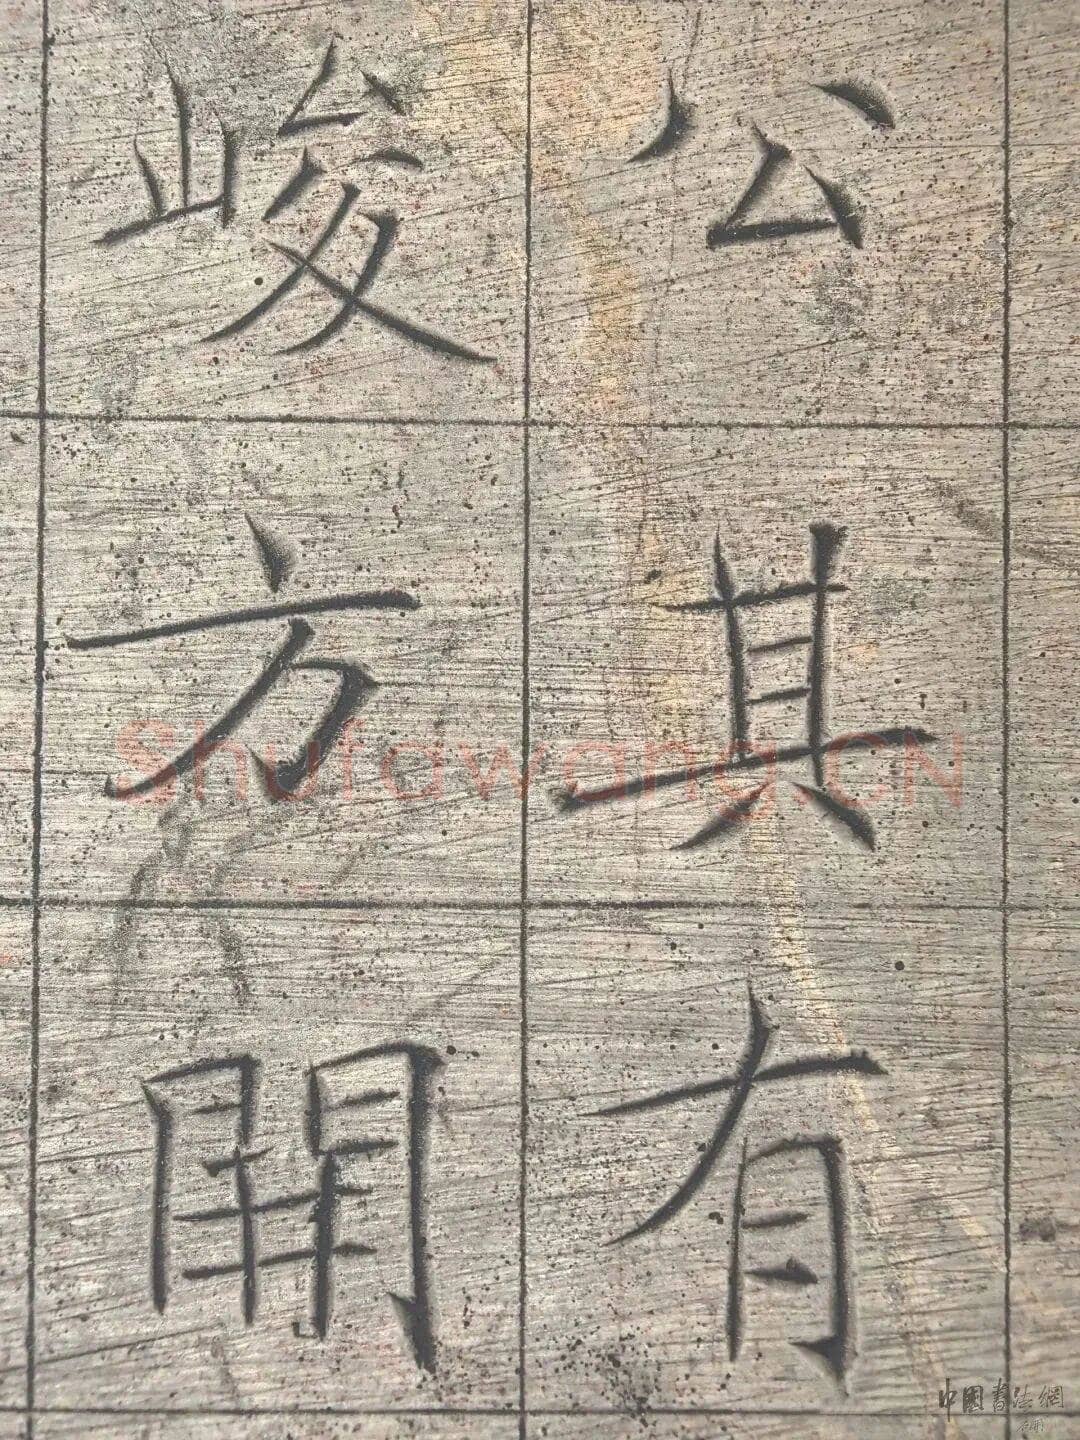 公其有
峻方開
Shufawang.CN
中國書法網